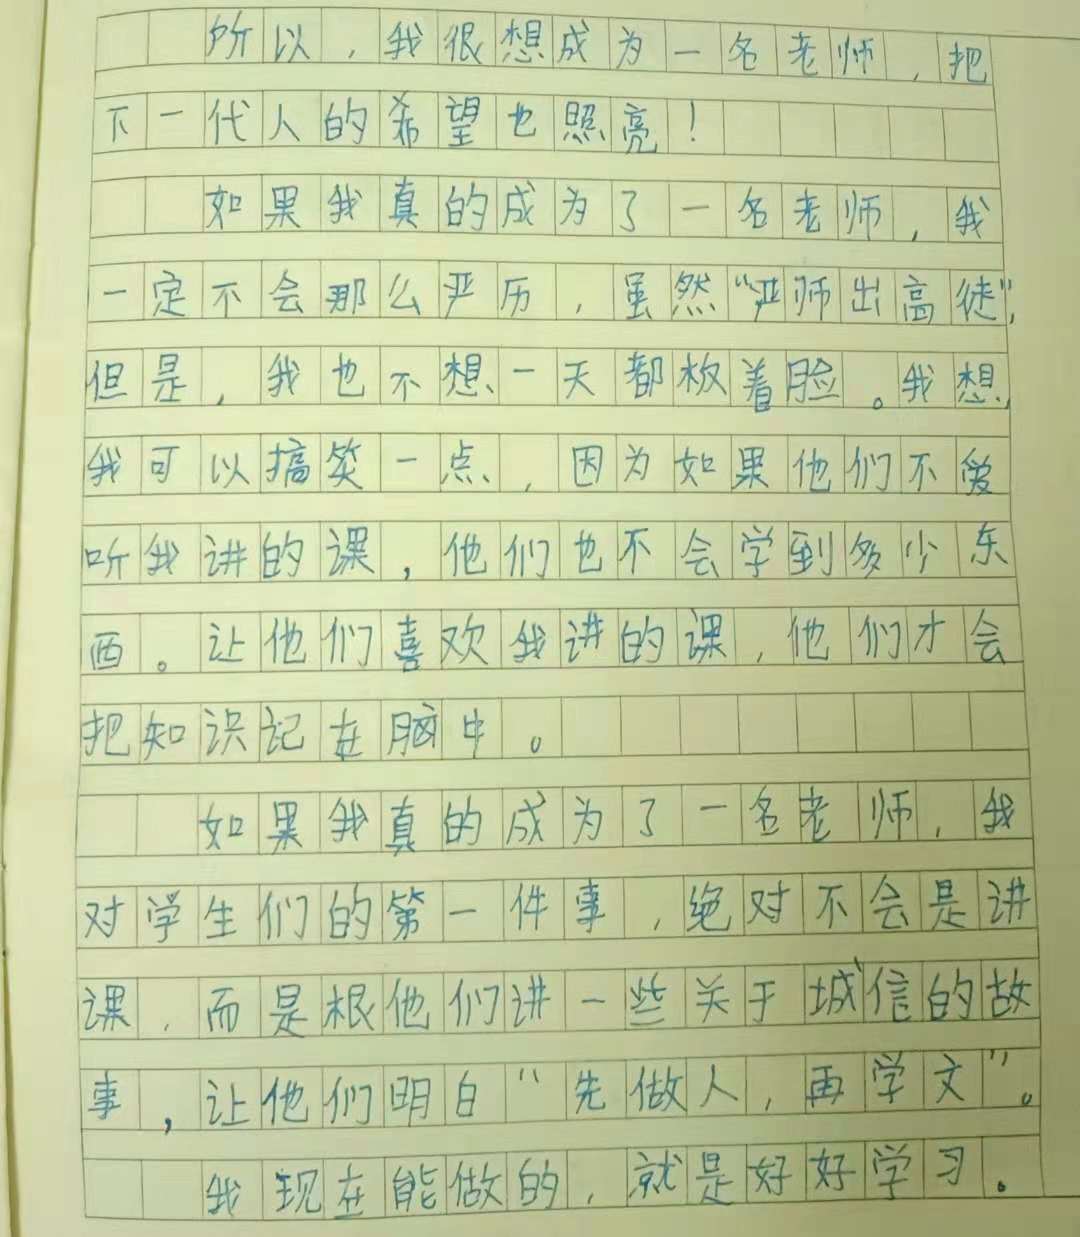 所以，我很想成为一名老师，把
下一代人的希望也照亮！
如果我真的成为了一名老师，我
一定不会那么严历，虽然“严师出高徒”，
但是，我也不想一天都板着脸。我想，
我可以搞笑一点，因为如果他们不爱
听我讲的课，他们也不会学到多少东
西。让他们喜欢我讲的课，他们才会
把知识记在脑中。
如果我真的成为了一名老师，我
对学生们的第一件事，绝对不会是讲
课，而是根他们讲一些关于城信的故
事，让他们明白“先做人，再学文”。
我现在能做的，就是好好学习。